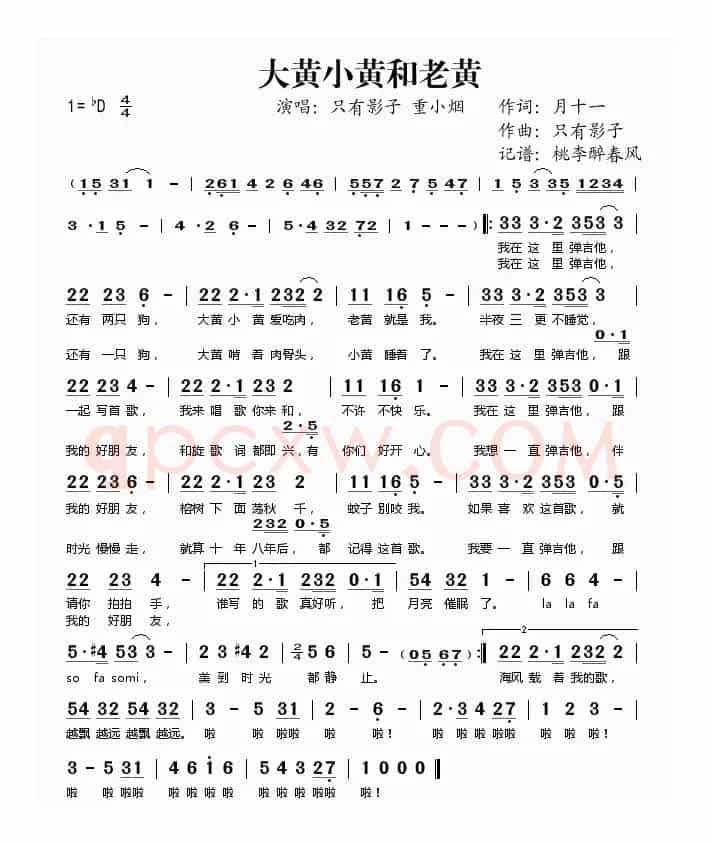 大黄小黄和老黄
1=♭D 4/4 演唱：只有影子 重小烟 作词：月十一
作曲：只有影子
记谱：桃李醉春风
( 15 31 1 - | 261 4 2 6 46 | 557 2 7 5 47 | 1 5 3 35 1234 |
3 ·1 5 - | 4 ·2 6 - | 5·4 32 72 | 1 - - - ) ‖: 33 3·2 353 3 |
我在 这 里 弹吉他，
我在 这 里 弹吉他，
22 23 6 - | 22 2·1 232 2 | 11 16 5 - | 33 3·2 353 3 |
还有 两只 狗， 大黄 小 黄 爱吃肉， 老黄 就是 我。 半夜 三 更 不睡觉，
0·1
还有 一只 狗， 大黄 啃 着 肉骨头， 小黄 睡着 了。 我在 这 里 弹吉他， 跟
22 23 4 - | 22 2·1 23 2 | 11 16 1 - | 33 3·2 353 0·1 |
一起 写首 歌， 我来 唱 歌 你来 和， 不许 不快 乐。 我在 这 里 弹吉他， 跟
2·5
我的 好朋 友， 和旋 歌 词 都即 兴，有 你们 好开 心。 我想 一 直 弹吉他， 伴
22 23 6 - | 22 2·1 23 2 | 11 16 5 - | 33 3·2 353 0·5 |
我的 好朋 友， 榕树 下 面 荡秋 千， 蚊子 别咬 我。 如果 喜 欢 这首歌， 就
232 0·5
时光 慢慢 走， 就算 十 年 八年后， 都 记得 这首 歌。 我要 一 直 弹吉他， 跟
1
22 23 4 - | 22 2·1 232 0·1 | 54 32 1 - | 6 6 4 - |
请你 拍拍 手， 谁写 的 歌 真好听， 把 月亮 催眠 了。 la la fa
我的 好朋 友，
2
5·#4 53 3 - | 2 3 #4 32 | 2/4 5 6 | 5 - | (05 67) :‖ 22 2·1 232 2 |
so fa somi， 美 到 时 光 都 静 止。 海风 载 着 我的 歌，
54 32 54 32 | 3 - 5 31 | 2 - 6 - | 2·3 4 54 27 | 1 2 3 - |
越飘 越远 越飘 越远。 啦 啦 啦啦 啦 啦！ 啦 啦 啦 啦啦 啦啦 啦 啦 啦！
3 - 5 31 | 4 6 1 6 | 5 4 3 27 | 1 0 0 0 ‖
啦 啦 啦啦 啦 啦 啦 啦 啦 啦 啦 啦啦 啦！
qpcxw.COM